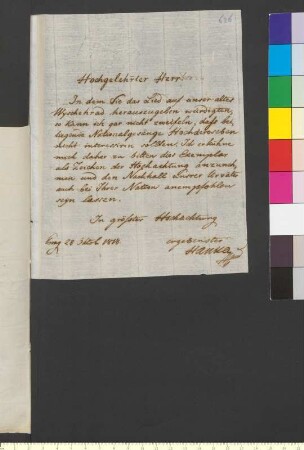 Hochgelehrter Herr
In dem Sie das Lied auf unser altes
Wyschehrad herauszugeben würdigten,
so kann ich gar nicht zweifeln, daß bei
liegende Nationalgesänge Hochdieselben
nicht interessiren sollten. Ich erkühne
mich daher zu bitten das Exemplar
als Zeichen der Hochachtung anzuneh
men und den Nachhall unsrer Urväter
auch bei Ihrer anempfohlen
seyn lassen.
In größter Hochachtung
Prag 28
ergebenster
Hanka